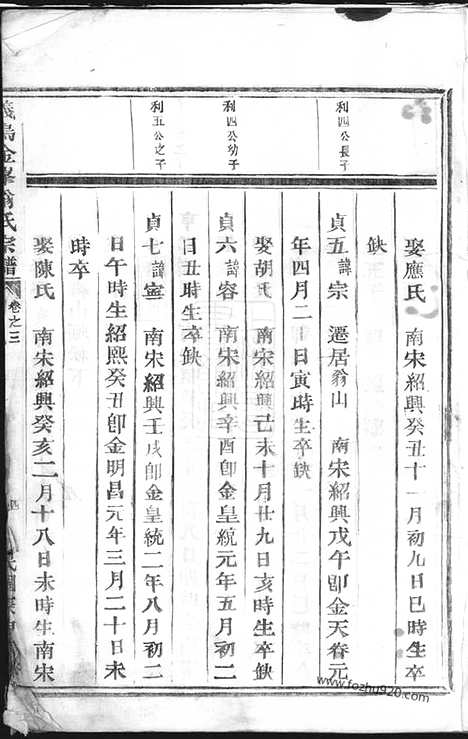 利四公長子
利四公幼子
利五公之子
娶應氏 南宋紹興癸丑十一月初九日巳時生卒
缺
貞五諱宗 遷居翁山 南宋紹興戊午卽金天眷元
年四月二十日寅時生卒缺
娶胡氏 南宋紹興己未十月廿九日亥時生卒缺
貞六諱容 南宋紹興辛酉卽金皇統元年五月初二
日丑時生卒缺
貞七諱寧 南宋紹興壬戌卽金皇統二年八月初二
日午時生紹熙癸丑卽金明昌元年三月二十日未
時卒
娶陳氏 南宋紹興癸亥二月十八日未時生南宋
義烏金峯俞氏宗譜 卷之三
www.fozhu920.com